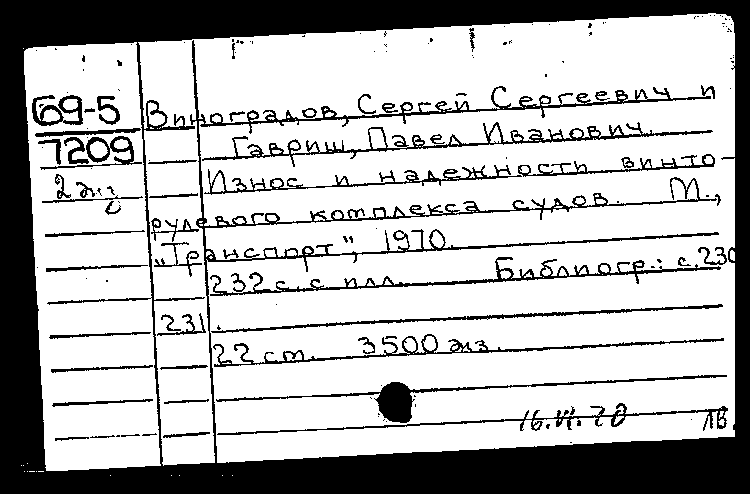 69-5
7209
2 экз
Виноградов, Сергей Сергеевич и
Гавриш, Павел Иванович.
Износ и надежность винто-
рулевого комплекса судов. М.,
"Транспорт", 1970.
232 с. с илл. Библиогр.: с. 230
231.
22 см. 3500 экз.
16.VI.70 ЛВ.